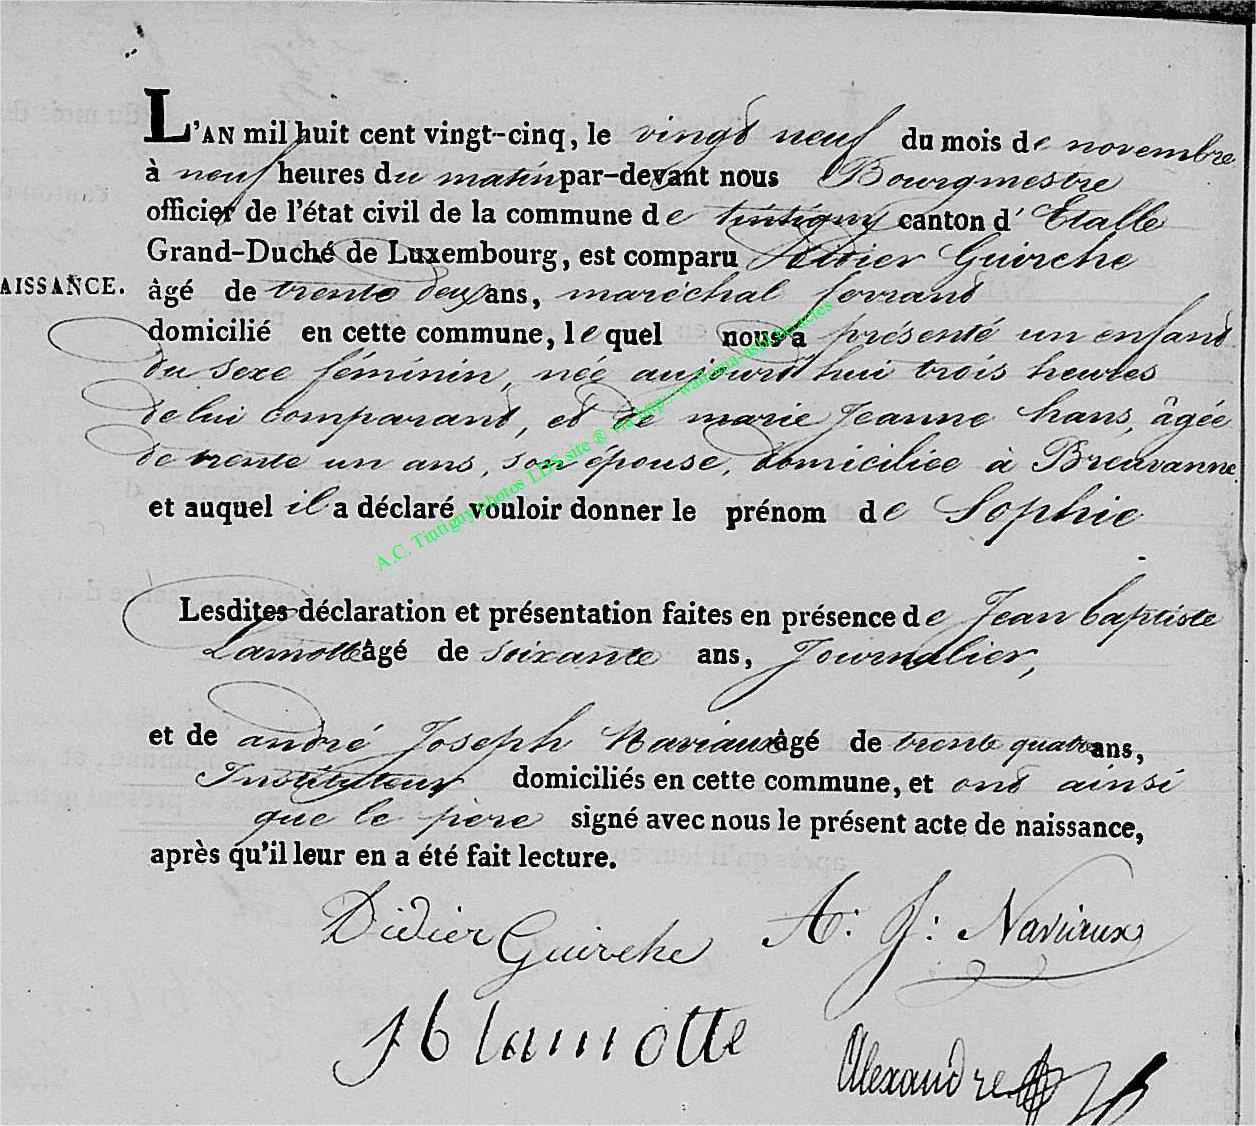 L'AN mil huit cent vingt-cinq, le vingt neuf du mois de novembre
à neuf heures du matin par-devant nous Bourgmestre
officier de l'état civil de la commune de tintigny canton d'Etalle
Grand-Duché de Luxembourg, est comparu Didier Guirche
AISSANCE. âgé de trente deux ans, maréchal ferrant
domicilié en cette commune, lequel nous a présenté un enfant
du sexe féminin, née aujourd'hui trois heures
de lui comparant, et de marie Jeanne hans, âgée
de trente un ans, son épouse, domiciliée à Breuvanne
et auquel il a déclaré vouloir donner le prénom de Sophie
Lesdites déclaration et présentation faites en présence de Jean baptiste
Lamotte âgé de soixante ans, Journalier,
et de andré Joseph Naviaux âgé de trente quatre ans,
Instituteur domiciliés en cette commune, et ont ainsi
que le père signé avec nous le présent acte de naissance,
après qu'il leur en a été fait lecture.
Didier Guirche A: J: Naviaux
J b lamotte
Alexandre
A.C. Tintigny photos LDS site ® via http://wallonia-asbl.be/actes